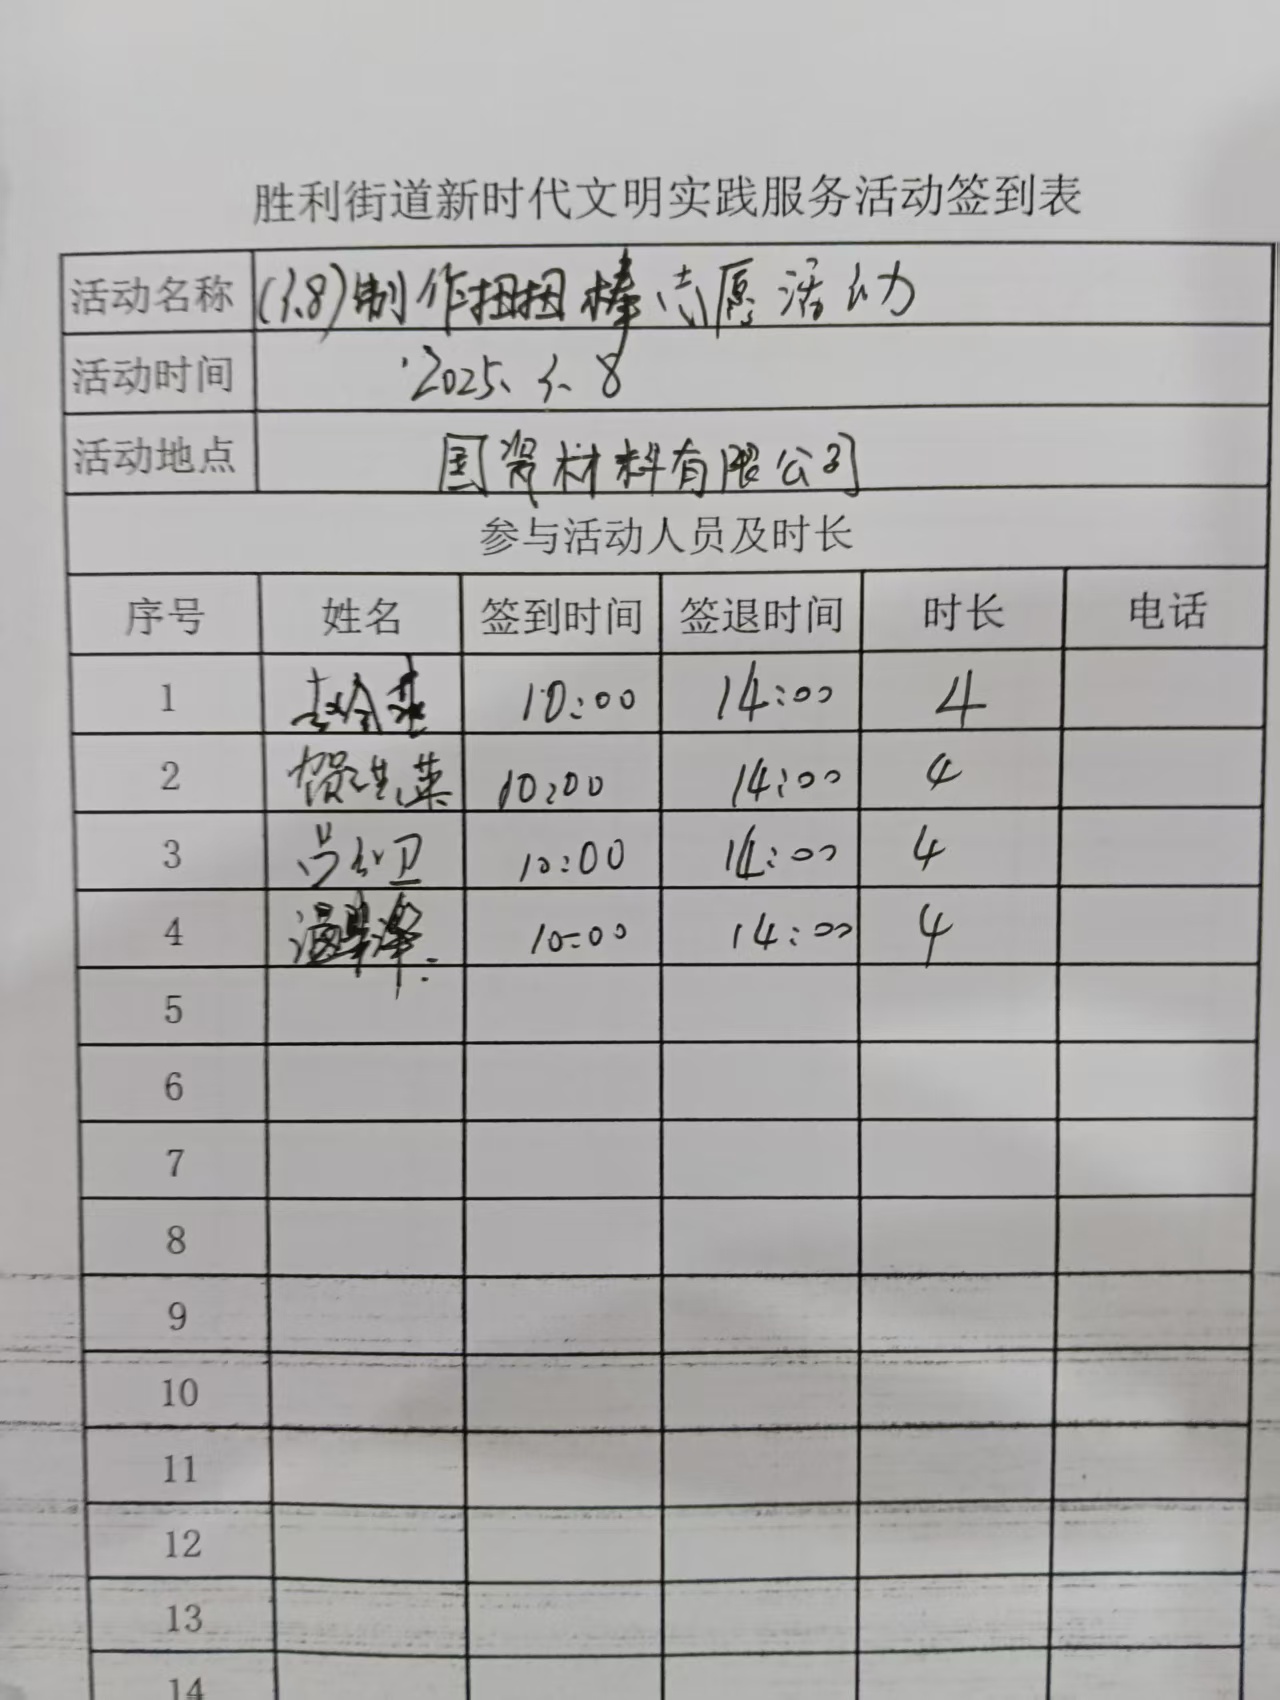 胜利街道新时代文明实践服务活动签到表
活动名称 (3.8)制作扭扭棒志愿活动
活动时间 2025.3.8
活动地点 国瓷材料有限公司
参与活动人员及时长
序号 姓名 签到时间 签退时间 时长 电话
1 10:00 14:00 4
2 10:00 14:00 4
3 10:00 14:00 4
4 10:00 14:00 4
5
6
7
8
9
10
11
12
13
14